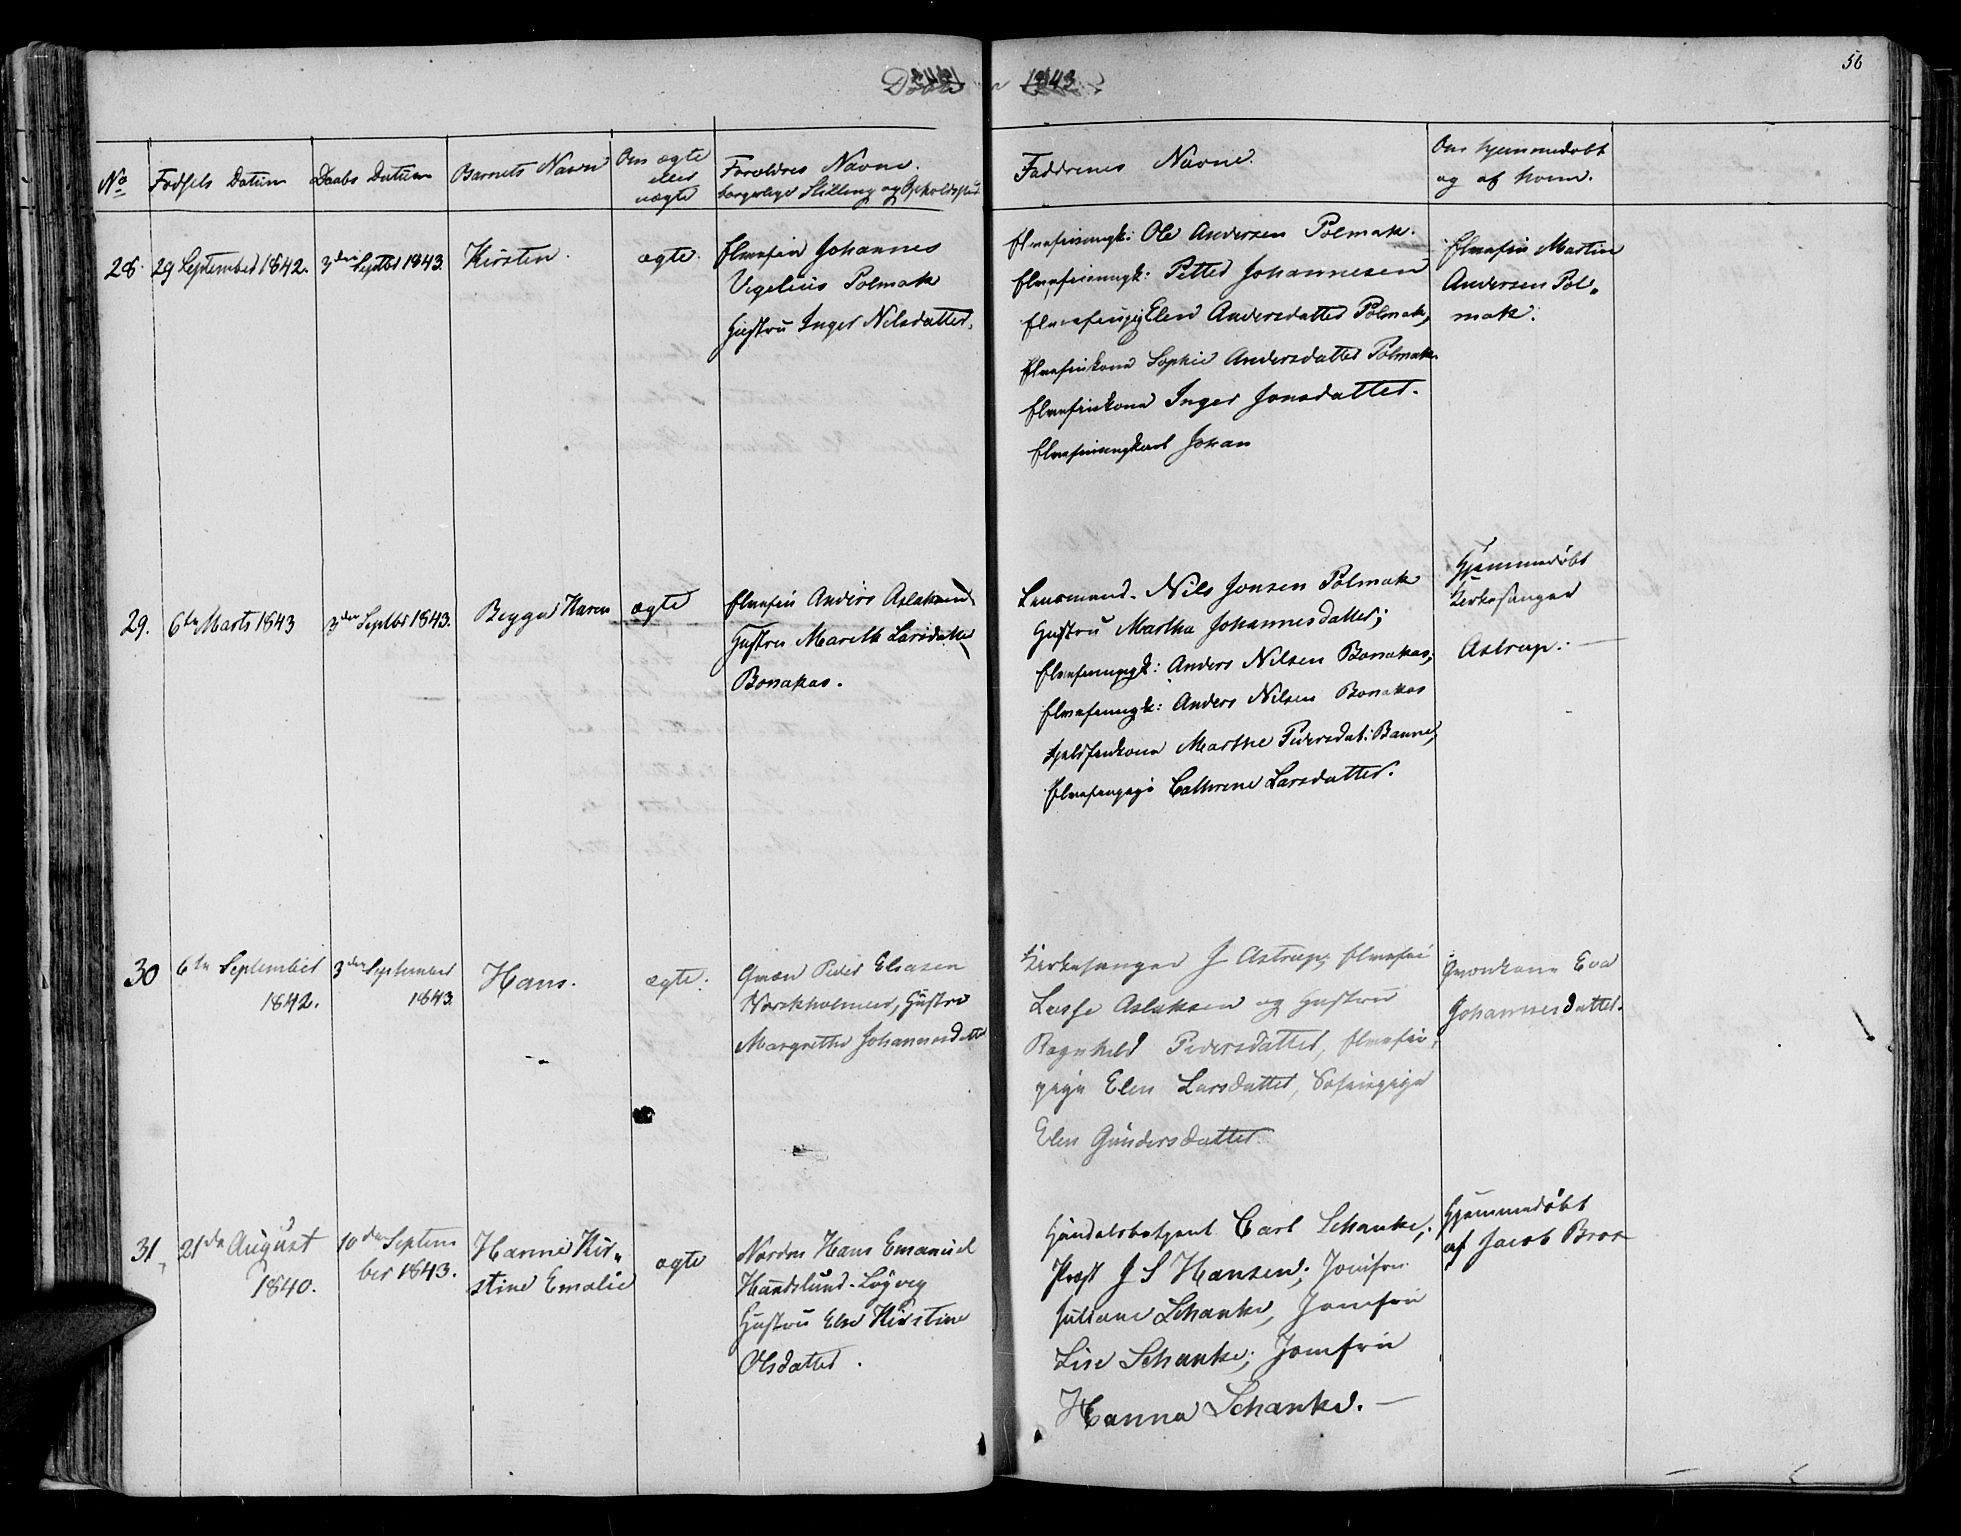 56
1843
No
Fødsels Datum
Daabs Datum
Barnets Navn
Om ægte
eller
uægte
Forældres Navne.
borgerlige Stilling og Opholdssted
Faddrenes Navne.
Om hjemmedøbt
og af hvem.
28.
29 September 1842.
3die Septbr 1843.
Kirsten.
ægte.
Elvefin Johannes
Vigelius Polmak
Hustru Inger Nilsdatter.
Ole Andersen Polmak.
Petter Johannesen
Elen Andersdatter Polmak,
Elvefinkone Sophie Andersdatter Polmak.
Elvefinkone Inger Jonsdatter.
Johan
Elvefin Martin
Andersen Pol„
mak.
29.
6te Marts 1843
3die Septbr 1843.
Bigge Karen
ægte
Elvefin Anders Aslaksen
Hustru Mareth Larsdatter
Bonakas.
Lensmand Nils Jonsen Polmak
Hustru Martha Johannesdatter;
Anders Nilsen Bonakas;
Anders Nilsen Bonakas
Fjeldfinkone Marthe Pedersdat: Banne,
Elvefinpige Cathrine Larsdatter.
Hjemmedøbt
Kirkesanger
Astrup.
30
6te September
1842.
3die September
1843
Hans.
ægte.
Qvæn Peder Eliasen
Hustru
Margrethe Johannesdatter
Kirkesanger J Astrup, Elvefin
Lasse Aslaksen og Hustru
Ragnhild Pedersdatter, Elvefin„
pige Elen Larsdatter, Søfinpige
Elen Gundersdatter
Qvænkone Eva
Johannesdatter.
31,
21de August
1840.
10de Septem
ber 1843.
Hanne Kir„
stine Emalie
ægte
Nordm Hans Emanuel
Hustru Else Kirstine
Olsdatter.
Handelsbetjent Carl Schanke;
Provst J S Hansen; Jomfru
Juliane Schanke, Jomfru
Lise Schanke; Jomfru
Hanna Schanke.
Hjemmedøbt
af Jacob Bros